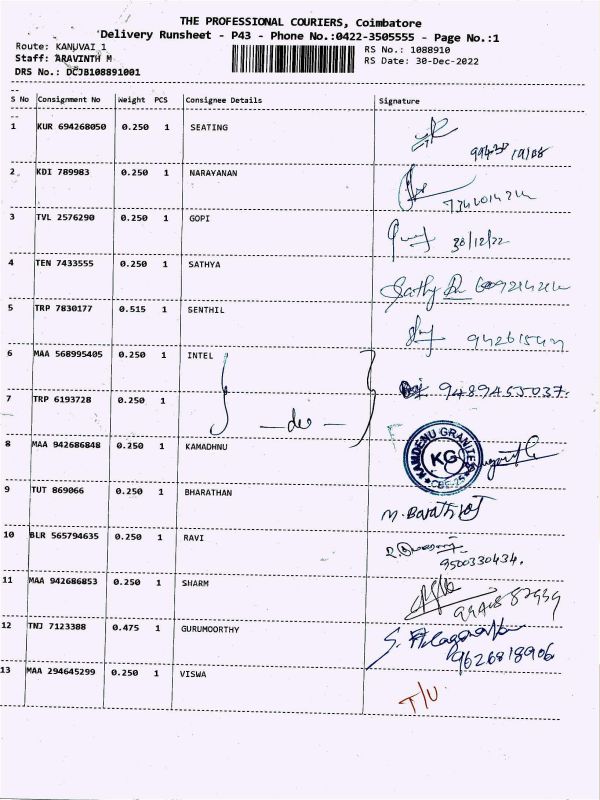 THE PROFESSIONAL COURIERS, Coimbatore
Delivery Runsheet - P43 - Phone No.:0422-3505555 - Page No.:1
Route: KANUVAI 1
RS No.: 1088910
Staff: ARAVINTH M
RS Date: 30-Dec-2022
DRS No.: DCJB108891001
S No Consignment No Weight PCS Consignee Details Signature
1 KUR 694268050 0.250 1 SEATING
2 KDI 789983 0.250 1 NARAYANAN
3 TVL 2576290 0.250 1 GOPI 30/12/22
4 TEN 7433555 0.250 1 SATHYA Sathy
5 TRP 7830177 0.515 1 SENTHIL
6 MAA 568995405 0.250 1 INTEL 9489455037.
7 TRP 6193728 0.250 1 -do-
8 MAA 942686848 0.250 1 KAMADHNU KAMDENU GRANITES KG CBE-25
9 TUT 869066 0.250 1 BHARATHAN M. Barathraj
10 BLR 565794635 0.250 1 RAVI 9500330434.
11 MAA 942686853 0.250 1 SHARM
12 TNJ 7123388 0.475 1 GURUMOORTHY 9626818906
13 MAA 294645299 0.250 1 VISWA T/U